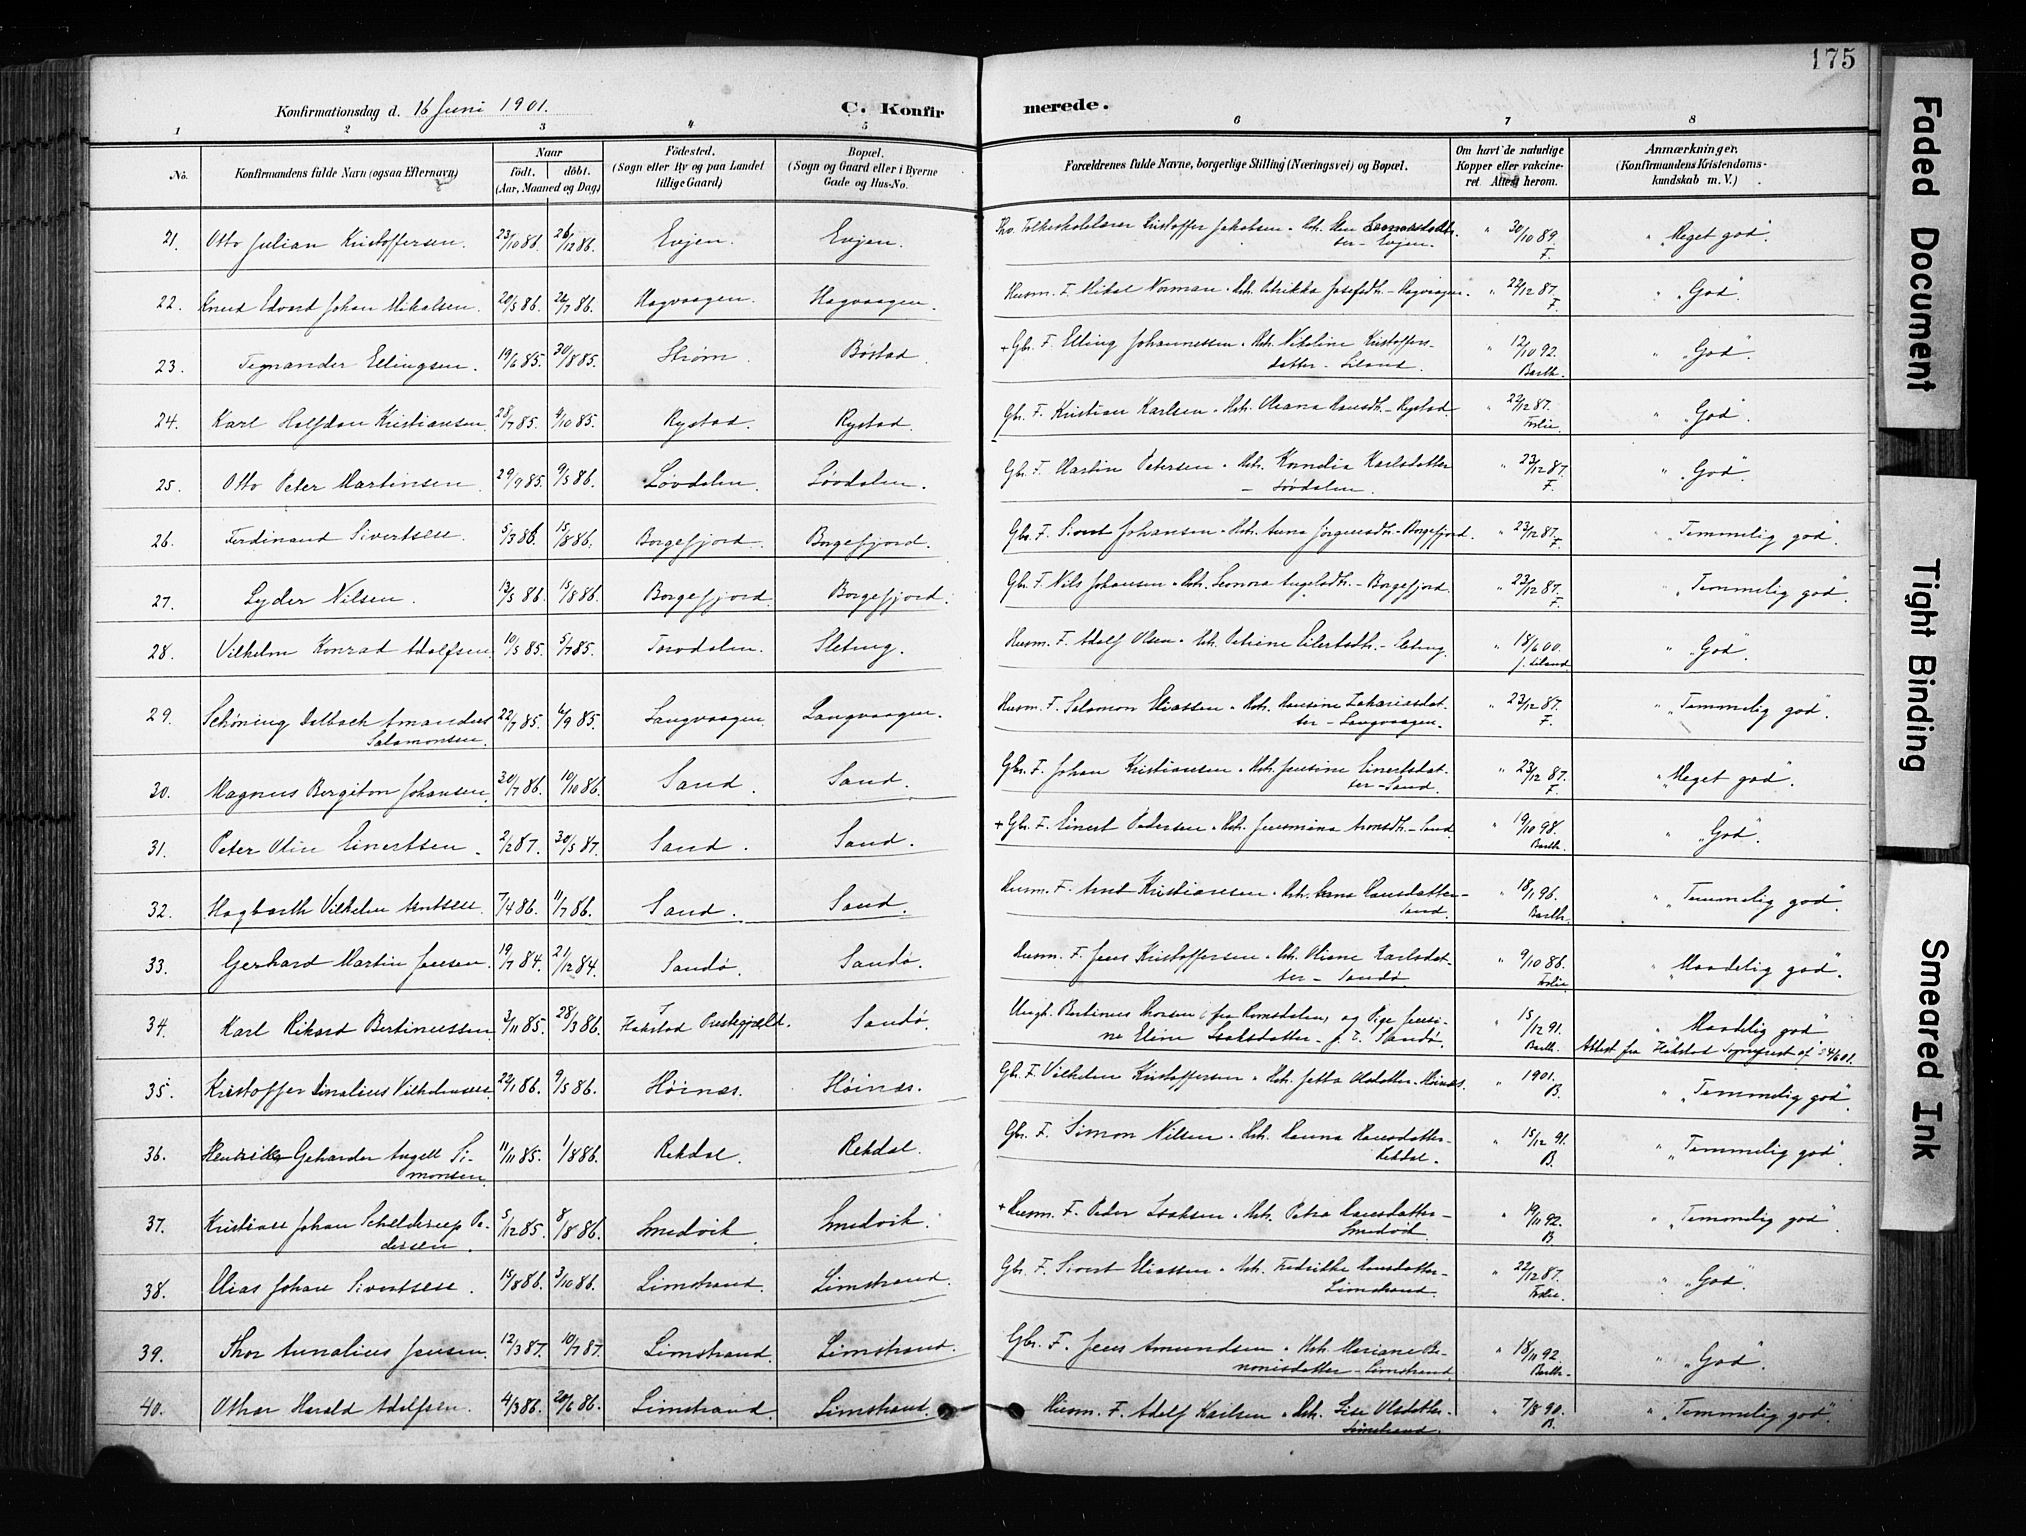 175
Konfirmationsdag d. 16 Juni 1901. C. Konfirmerede.
1 2 3 4 5 6 7 8
No. Konfirmandens fulde Navn (ogsaa Efternavn) Naar Födt. döbt. (Aar, Maaned og Dag) Födested. (Sogn eller By og paa Landet tillige Gaard) Bopæl. (Sogn og Gaard eller i Byerne Gade og Hus-No. Forældrenes fulde Navne, borgerlige Stilling (Næringsvei) og Bopæl. Om havt de naturlige Kopper eller vakcineret. Attest herom. Anmærkninger. (Konfirmandens Kristendomskundskab m. V.)
21. Otto Julian Kristoffersen. 23/10 86. 26/12 86. Evjen. Evjen. Folkeskolelærer Kristoffer Jakobsen Evjen. " 30/10 89. F. " "Meget god".
22. Knud Edvard Johan Mikalsen. 20/5 86. 26/7 86. Hagvaagen. Hagvaagen. Husm. F. Mikal Norman Hst. Josefsdtr. - Hagvaagen. " 22/12 87. F. " "God".
23. Tegnander Ellingsen. 19/6 85. 30/8 85. Strøm. Bøstad. + Gbr. F. Elling Johannessen Hst. Nikoline Kristoffersdatter - Liland. " 12/10 92. Barth. " "God".
24. Karl Halfdan Kristiansen. 28/7 85. 4/10 85. Rystad. Rystad. Gbr. F. Kristian Karlsen Hst. Hansdtr. - Rystad. " 22/12 87. " "God".
25. Otto Peter Martinsen. 29/9 85. 9/5 86. Løvdalen. Løvdalen. Gbr. F. Martin Petersen Hst. Kornelia Karlsdatter - Løvdalen. " 23/12 87. F. " "God".
26. Ferdinand Sivertsen. 5/3 86. 15/8 86. Borgefjord. Borgefjord. Gbr. F. Sivert Johansen Hst. Anna Jørgensdtr. - Borgefjord. " 23/12 87. F. " "Temmelig god".
27. Lyder Nilsen. 13/5 86. 15/8 86. Borgefjord. Borgefjord. Gbr. F. Nils Johansen Hst. Leonora Angelsdtr. - Borgefjord. " 23/12 87. F. " "Temmelig god".
28. Vilhelm Konrad Adolfsen. 10/5 85. 5/7 85. Torvdalen. Sleteng. Husm. F. Adolf Olsen Hst. Petrine Eilertsdtr. - Sleteng. " 18/6 00. " "God".
29. Schøning Dalbach Amandus Salamonsen. 22/7 85. 6/9 85. Langvaagen. Langvaagen. Husm. F. Salamon Eliassen Hst. Hansine Zakariasdatter - Langvaagen. " 23/12 87. F. " "Temmelig god".
30. Magnus Bergiton Johansen. 30/7 86. 10/10 86. Sand. Sand. Gbr. F. Johan Kristiansen Hst. Jensine Einertsdatter - Sand. " 23/12 87. F. " "Meget god".
31. Peter Olin Einertsen. 2/2 87. 30/5 87. Sand. Sand. + Gbr. F. Einert Pedersen Hst. Aronsdtr. - Sand " 19/10 98. Barth. " "God".
32. Hagbarth Vilhelm Arntsen. 7/4 86. 11/7 86. Sand. Sand. Husm. F. Arnt Kristiansen Hst. Hansdatter - Sand. " 18/11 96. Barth. " "Temmelig god".
33. Gerhard Martin Jensen. 19/7 84. 21/12 84. Sandø. Sandø. Husm. F. Jens Kristoffersen Hst. Karlsdatter - Sandø. " 9/10 86. " "Maadelig god".
34. Karl Rikard Bertinussen 3/11 85. 28/3 86. I Hakstad Prestegjæld. Sandø. Ungk. Bertinus fra Romsdalen, og Pige Jensine Eline Isaksdatter Sandø. " 15/12 91. Barth. " "Maadelig god" Attest fra Hakstad Sogneprest af 24/6 01.
35. Kristoffer Vilhelmsen 22/1 86. 9/5 86. Høinæs. Høinæs. Gbr. F. Vilhelm Kristoffersen Hst. Jetta Olsdatter - Høinæs. " 1901. B. " "Temmelig god".
36. Henrik Gehardar Angell Simonsen. 11/11 85. 1/8 86. Rekdal. Rekdal. Gbr. F. Simon Nilsen Hst. Hanna Hansdatter - Rekdal. " 15/12 91. B. " "Temmelig god".
37. Kristian Johan Schelderup Pedersen. 5/12 85. 8/8 86. Smedvik. Smedvik. + Husm. F. Peder Isaksen Hst. Petra Hansdatter - Smedvik. " 19/11 92. B " "Temmelig god".
38. Elias Johan Sivertsen. 15/8 86. 3/10 86. Limstrand. Limstrand. Gbr. F. Sivert Eliassen Hst. Fredrikke Hansdatter - Limstrand. " 22/12 87. " "God".
39. Thor Annalius Jensen. 12/3 87. 10/7 87. Limstrand. Limstrand. Gbr. F. Jens Amundsen Hst. Mariane Benonisdatter - Limstrand. " 18/11 92 Barth. " "God".
40. Othar Harald Adolfsen. 4/3 86. 20/6 86. Limstrand. Limstrand. Husm. F. Adolf Karlsen Hst. Lise Olsdatter - Limstrand. " 7/8 90. B. " "Temmelig god".
Faded Document
Tight Binding
Smeared Ink